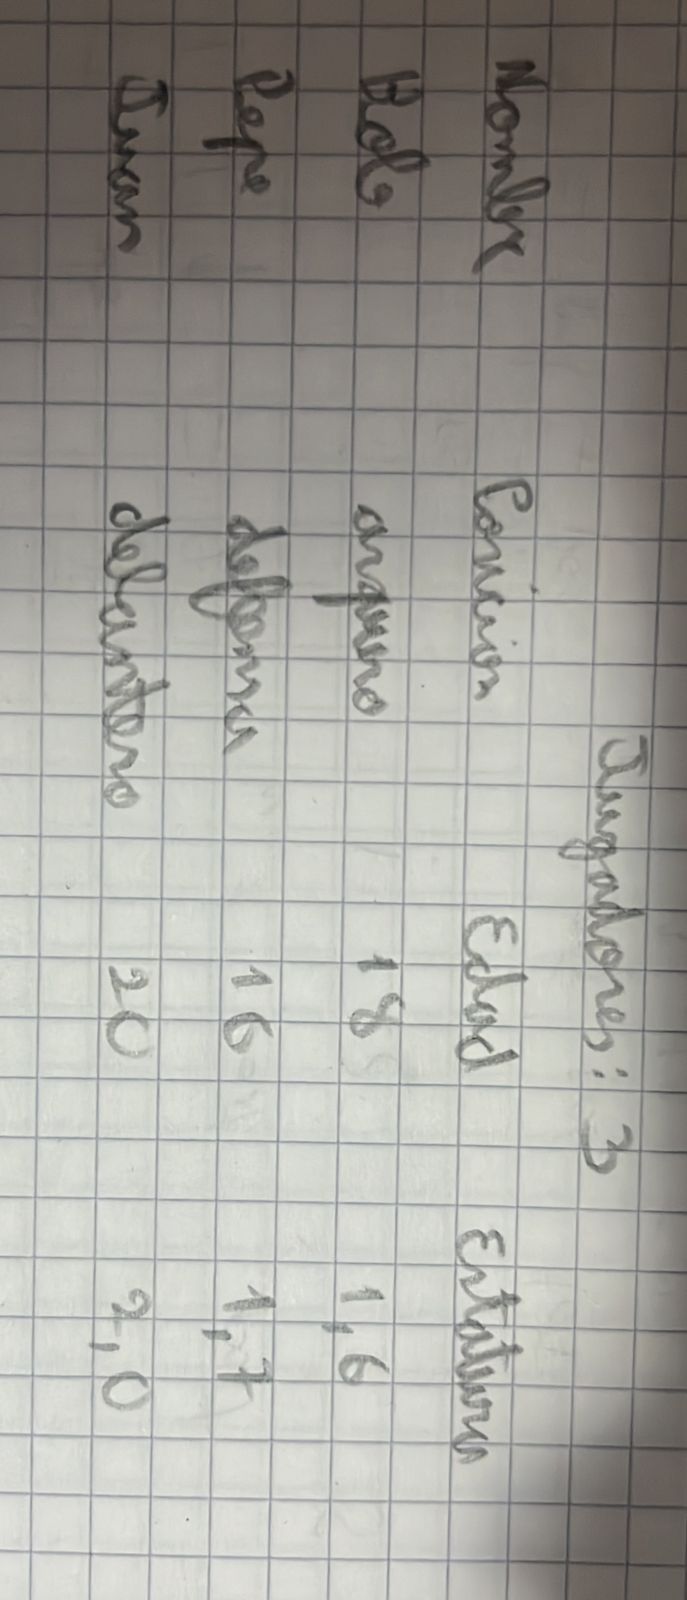 Jugadores: 3
Nombre Posicion Edad Estatura
arquero 18 1,6
Pepe defensa 16 1,7
Juan delantero 20 2,0